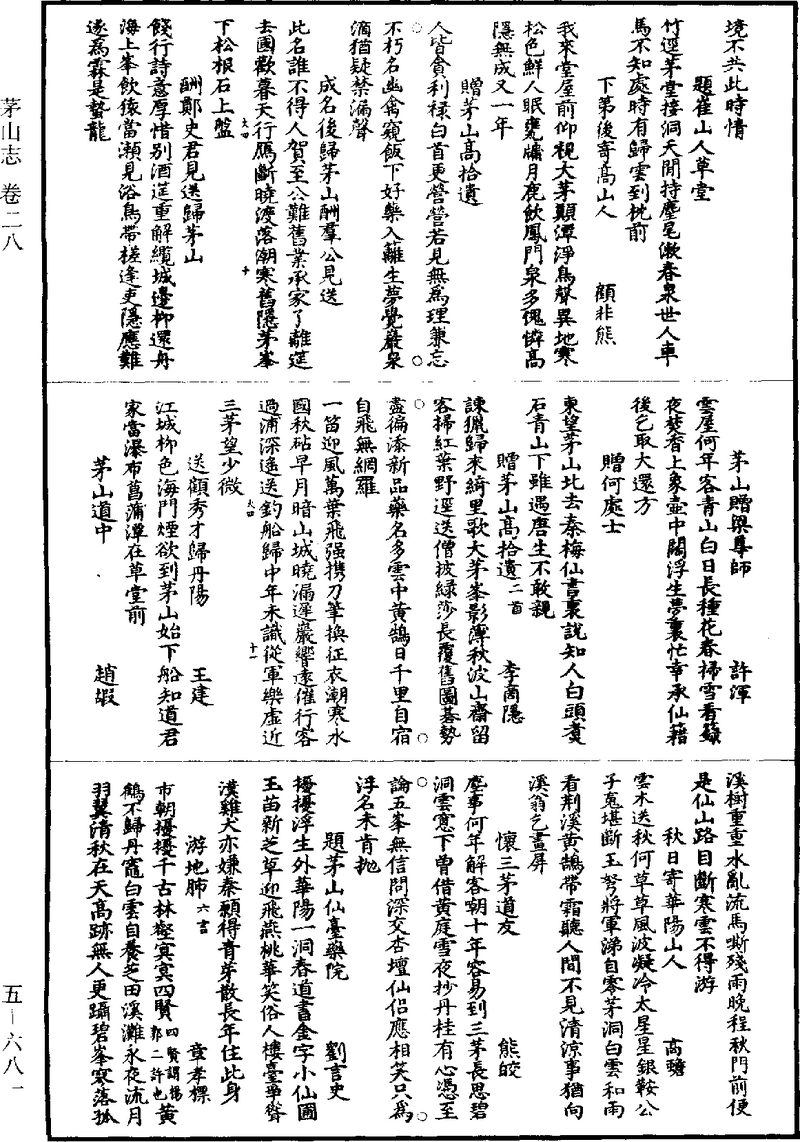 茅山志 卷二八
五—六八一
境不共此時情
題崔山人草堂
竹逕茅堂接洞天閒持麈尾漱春泉世人車
馬不知處時有歸雲到枕前
下第後寄高山人 顧非熊
我來堂屋前仰視大茅顛潭淨鳥聲異地寒
松色鮮人眠甕牖月鹿飲鳳門泉多愧憐高
隱無成又一年
贈茅山高拾遺
人皆貪利祿白首更營營若見無為理兼忘
不朽名幽禽窺飯下好藥入籬生夢覺巖泉
滴猶疑禁漏聲
成名後歸茅山酬羣公見送
此名誰不得人賀至公難舊業承家了離筵
去國歡暮天行鴈斷曉渡落潮寒舊隱茅峯
下松根石上盤
酬鄭史君見送歸茅山
餞行詩意厚惜別酒筵重解纜城邊柳還舟
海上峯飲猿當瀨見浴鳥帶槎逢吏隱應難
遂為霖是蟄龍
茅山贈梁尊師 許渾
雲屋何年客青山白日長種花春掃雪看籙
夜焚香上象壺中闊浮生夢裏忙幸承仙籍
後乞取大還方
贈何處士
東望茅山北去秦梅仙書裏說知人白頭賣
石青山下雖遇唐生不敢親
贈茅山高拾遺二首 李商隱
諫獵歸來綺里歌大茅峯影薄秋波山齋留
客掃紅葉野逕送僧披綠莎長覆舊圖棊勢
盡徧添新品藥名多雲中黃鵠日千里自宿
自飛無網羅
一笛迎風萬葉飛强攜刀筆換征衣潮寒水
國秋砧早月暗山城曉漏遲巖響遠催行客
過浦深遙送釣船歸中年未識從軍樂虛近
三茅望少微
送顧秀才歸丹陽 王建
江城柳色海門煙欲到茅山始下船知道君
家當瀑布菖蒲潭在草堂前
茅山道中 趙嘏
溪樹重重水亂流馬嘶殘雨晚程秋門前便
是仙山路目斷寒雲不得游
秋日寄華陽山人 高驣
雲木送秋何草草風波凝冷太星星銀鞍公
子䰟堪斷玉弩將軍涕自零茅洞白雲和雨
看荆溪黃鵠帶霜聽人間不見清涼事猶向
溪翁乞畫屏
懷三茅道友 熊皎
塵事何年解客嘲十年容易到三茅長思碧
洞雲窻下曾借黃庭雪夜抄丹桂有心憑至
論五峯無信問深交杏壇仙侣應相笑只為
浮名未肯拋
題茅山仙臺藥院 劉言史
擾擾浮生外華陽一洞春道書金字小仙圃
玉苗新芝草迎飛燕桃華笑俗人樓臺爭聳
漢雞犬亦嫌秦願得青芽散長年住此身
游地肺六言 章孝標
市朝擾擾千古林壑冥冥四賢四賢謂楊郭二許也黃
鶴不歸丹竈白雲自養芝田溪灘永夜流月
羽翼清秋在天高跡無人更躡碧峯寒落孤